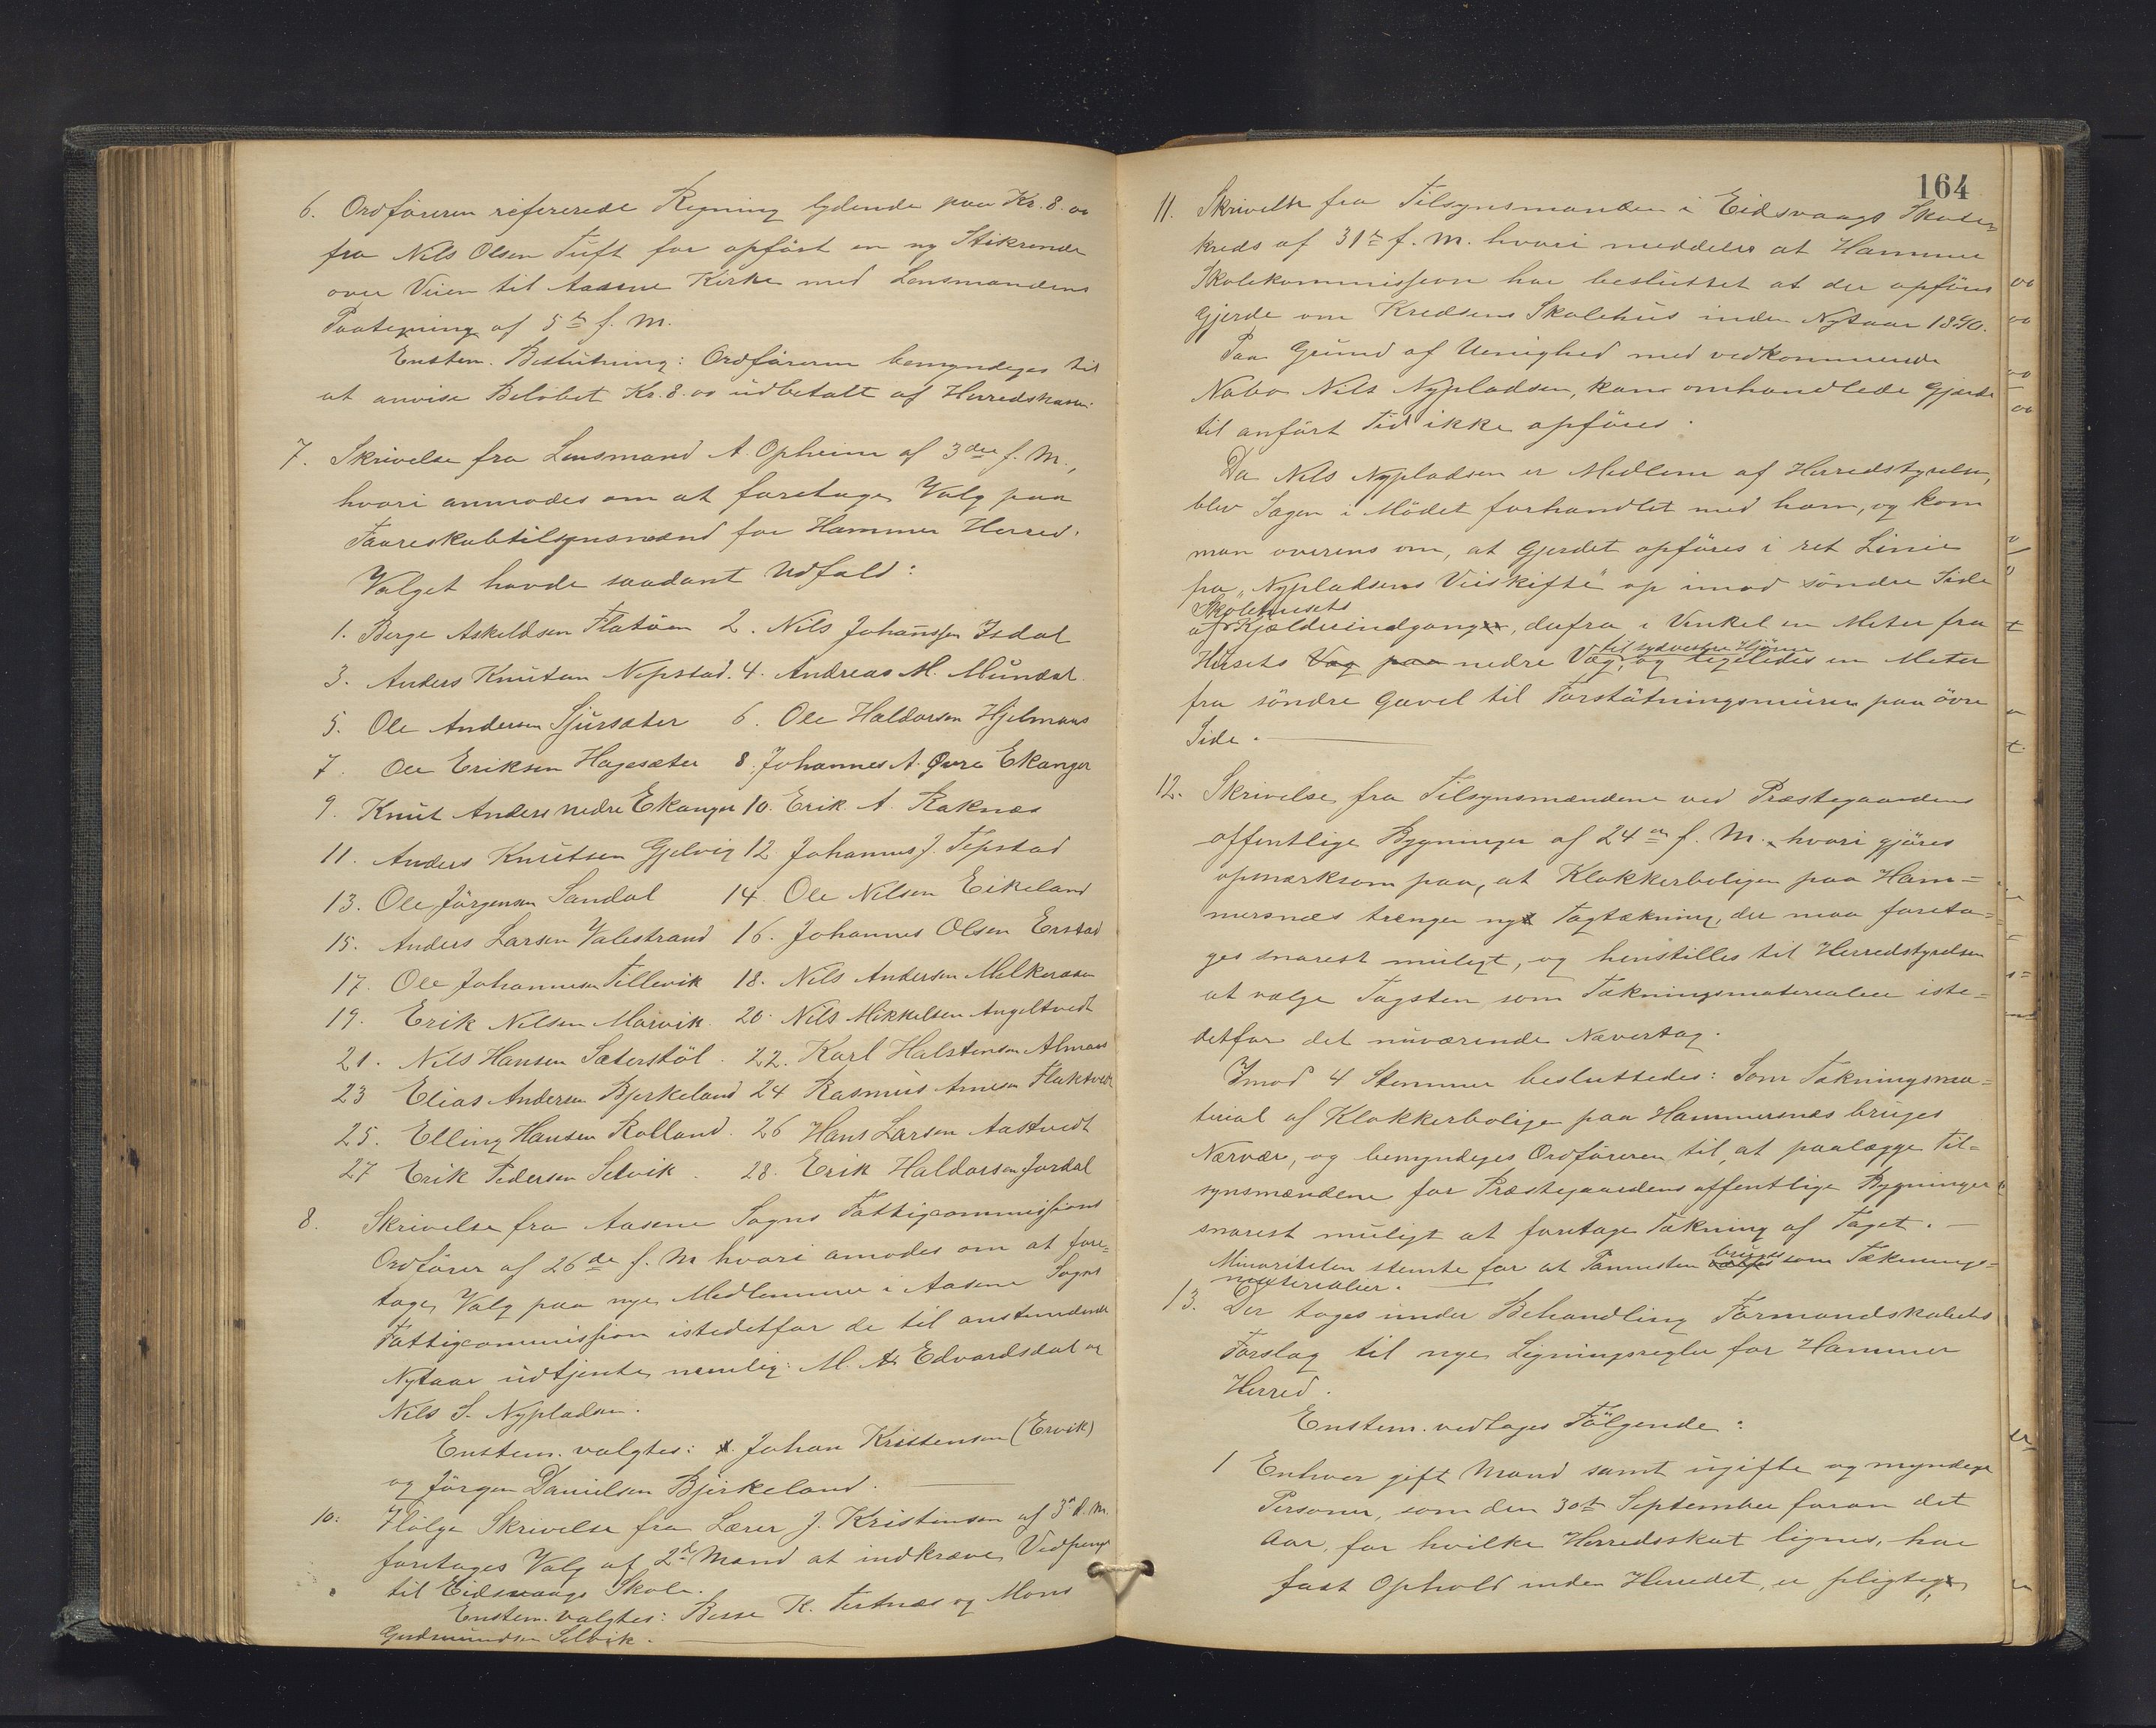 6. Ordföreren refererede Regning lydende paa Kr. 8.00
fra Nils Olsen Tuft for opfört en ny Stikrende
over Veien til Aasene Kirke med Lensmandens
Paategning af 5te f. M.
Enstem. Beslutning: Ordföreren bemyndiges til
at anvise Belöbet Kr. 8.00 udbetalt af Herredskassen.
7. Skrivelse fra Lensmand A. Opheim af 3die f. M.,
hvori anmodes om at foretage Valg paa
Faareskabtilsynsmænd for Hammer Herred.
Valget havde saadant Udfald:
1. Berge Askeldsen Flatöen 2. Nils Johannssen Isdal
3. Anders Knutsen Nepstad. 4. Andreas M. Mundal
5. Ole Andersen Sjursæter 6. Ole Haldorsen Hjelmaas
7. Ole Eriksen Hagesæter 8. Johannes A. Øvre Ekanger
9. Knut Anders nedre Ekanger 10. Erik A. Raknæs
11. Anders Knutsen Gjelvig 12. Johannes J. Tepstad
13. Ole Jörgensen Sandal 14. Ole Nilsen Eikeland
15. Anders Larsen Valestrand 16. Johannes Olsen Erstad
17. Ole Johannesen Tellevik 18. Nils Andersen Melkeraaen
19. Erik Nilsen Morvik. 20. Nils Mikkelsen Angeltvedt
21. Nils Hansen Sæterstöl. 22. Karl Halstensen Almaas
23 Elias Andersen Bjerkeland 24 Rasmus Arnesen Flaktvedt
25. Elling Hansen Rolland. 26 Hans Larsen Aastvedt
27 Erik Pedersen Selvik. 28. Erik Haldorsen Jordal
8. Skrivelse fra Aasene Sogns Fattigcommissions
Ordförer af 26de f. M hvori amodes om at fore=
tage Valg paa nye Medlemmer i Aasene Sogns
Fattigcommission istedetfor de til anstundende
Nytaar udtjente, nemlig: M. A. Edvardsdal og
Nils S. Nypladsen.
Enstem. valgtes: Johan Kristensen (Ervik)
og Jörgen Danielsen Bjerkeland.
10. Ifölge Skrivelse fra Lærer J. Kristensen af 3' d. M.
foretages Valg af 2de Mænd at indkræve Vedpenge
til Eidsvaags Skole.
Enstem. valgtes: Besse K. Tertnæs og Mons
Gudmundsen Selvik.
164
11. Skrivelse fra Tilsynsmanden i Eidsvaags Skole=
kreds af 31te f. M. hvori meddeles at Hammer
Skolekommission har besluttet at der opföres
Gjerde om Kredsens Skolehus inden Nytaar 1890.
Paa Grund af Uenighed med vedkommende
Nabo Nils Nypladsen, kan omhandlede Gjærde
til anfört Tid ikke opföres.
Da Nils Nypladsen er Medlem af Herredstyrelsen,
blev Sagen i Mödet forhandlet med ham, og kom
man overens om, at Gjerdet opföres i ret Linie
fra „Nypladsens Veiskifte" op imod söndre Side
Skolehusets
af Kjælderindgang, derfra i Vinkel en Meter fra
til sydvestre Hjörne
Husets Væg paa nedre Væg, og ligeledes en Meter
fra söndre Gavel til Forstötningsmuren paa övre
Side.
12. Skrivelse fra Tilsynsmændene ved Præstegaardens
offentlige Bygninger af 24de f. M. hvori gjöres
opmærksom paa, at Klokkerboligen paa Ham=
mersnæs trænger ny Tagtækning, der maa foreta=
ges snarest muligt, og henstilles til Herredstyrelsen
at vælge Tagsten som Tækningsmateriale iste=
detfor det nuværende Nævertag.
Imod 4 Stemmer besluttedes: Som Tækningsma=
terial af Klokkerbolige paa Hammersnæs bruges
Nærvær, og bemyndiges Ordföreren til, at paalægge Til=
synsmændene for Præstegaardens offentlige Bygninger
snarest muligt at foretage Tækning af Taget.
bruges
Minoriteten stemte for at Pannesten vælges som Tæknings=
materialier.
13. Der toges under Behandling Formandskabets
Forslag til nye Ligningsregler for Hammer
Herred.
Enstem. vedtages Fölgende:
1 Enhver gift Mand samt ugifte og myndige
Personer, som den 30te September foran det
Aar, for hvilke Herredsskat lignes, har
fast Ophold inden Herredet, er pligtig,